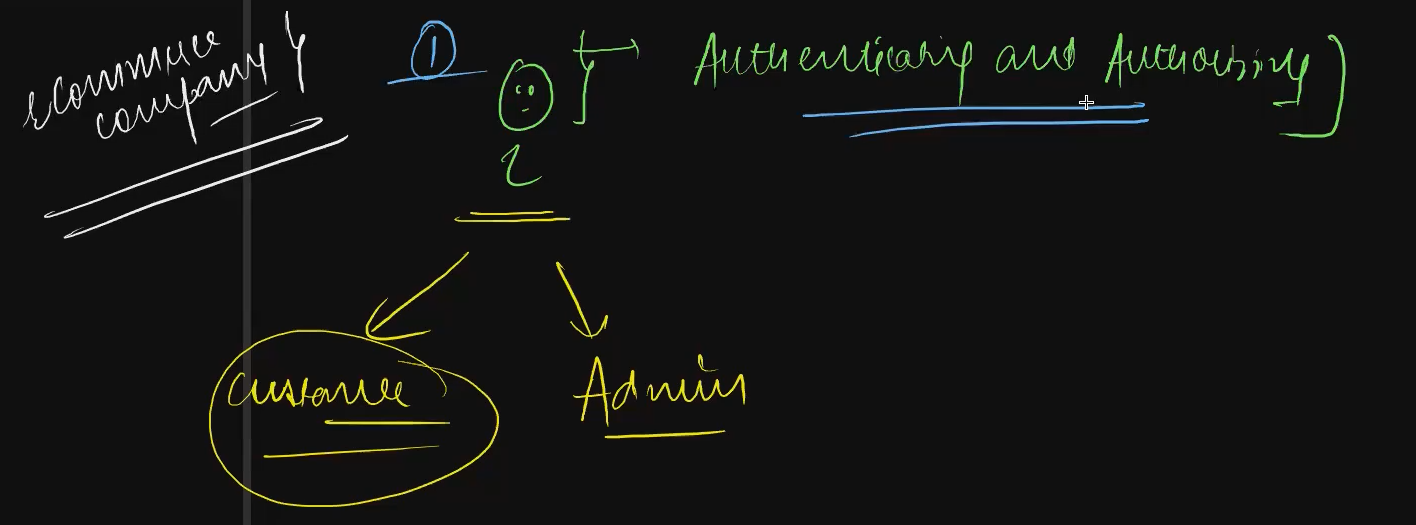 ecommerce
company
①
Authenticating and Authorising
customer
Admin